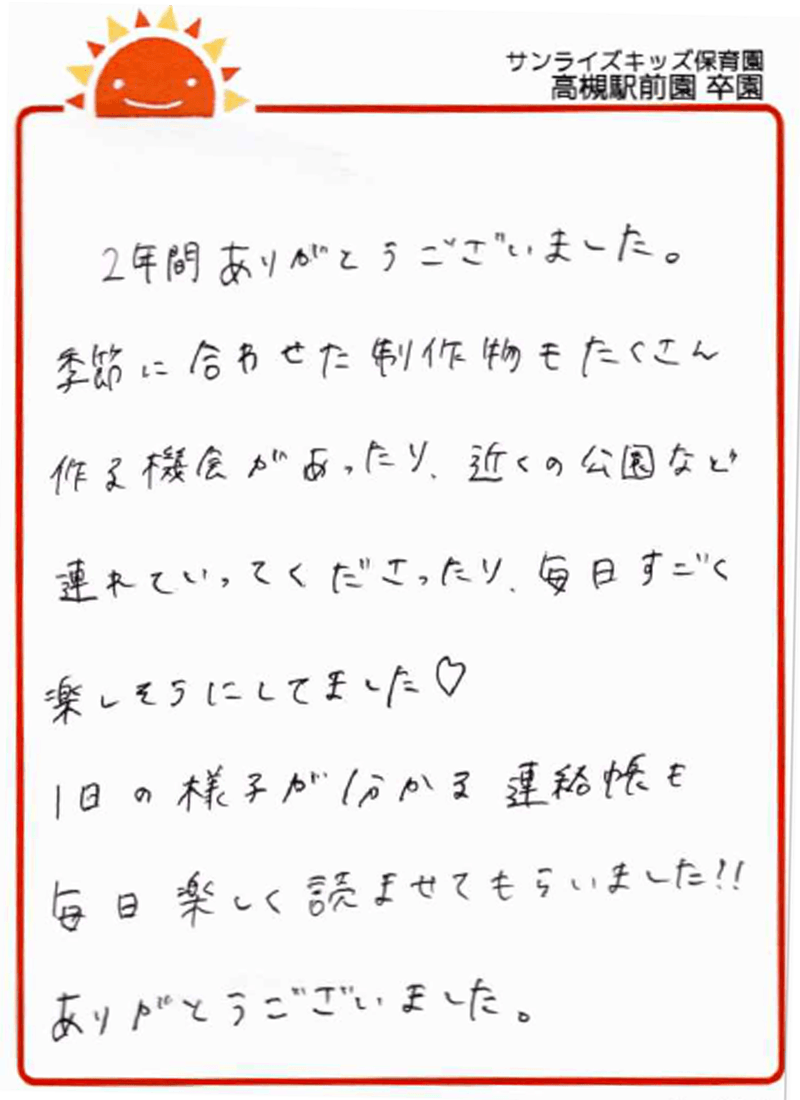 サンライズキッズ保育園
高槻駅前園 卒園
2年間ありがとうございました。
季節に合わせた制作物もたくさん
作る機会があったり、近くの公園など
連れていってくださったり、毎日すごく
楽しそうにしてました♡
1日の様子が分かる連絡帳も
毎日楽しく読ませてもらいました!!
ありがとうございました。